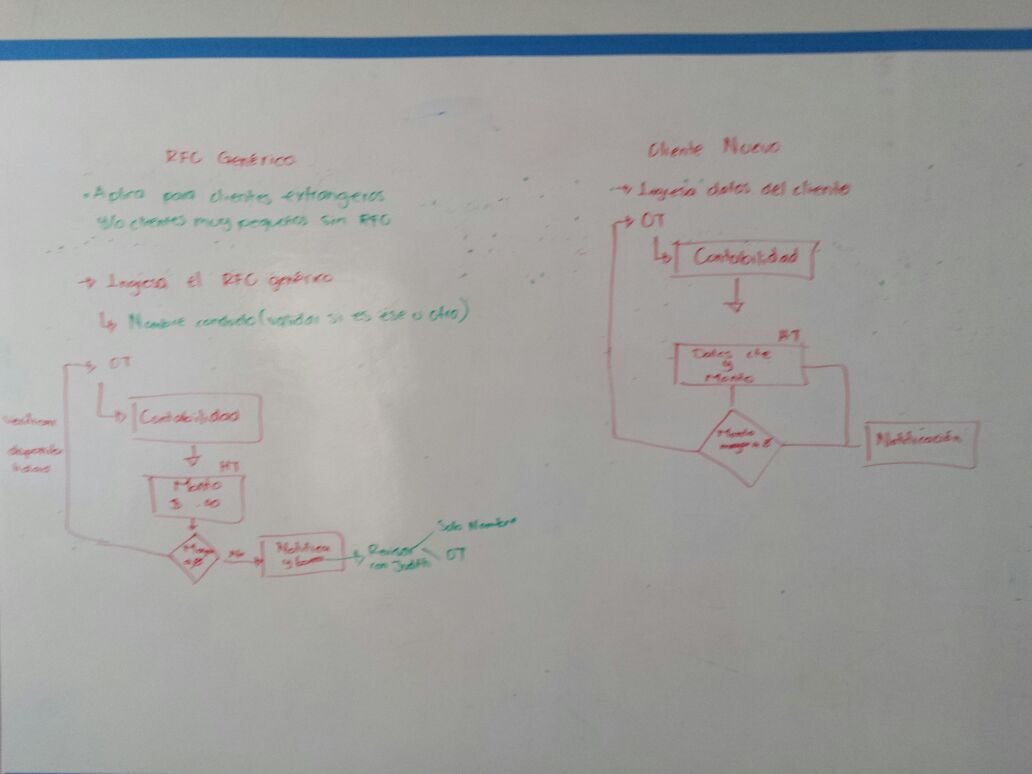 RFC Genérico
• Aplica para clientes extrangeros
y/o clientes muy pequeños sin RFC
→ Ingresa el RFC genérico
↳ Nombre (validar si es ese u otro)
→ OT
Contabilidad
Verificar
HT
Monto
$ .00
Mayor
a $
No
Notifica
y borra
→ Revisar
con Judith
Solo Nombre
OT
Cliente Nuevo
→ Ingresa datos del cliente
→ OT
Contabilidad
HT
Datos cte
y
Monto
Monto
mayor a $
Notificación